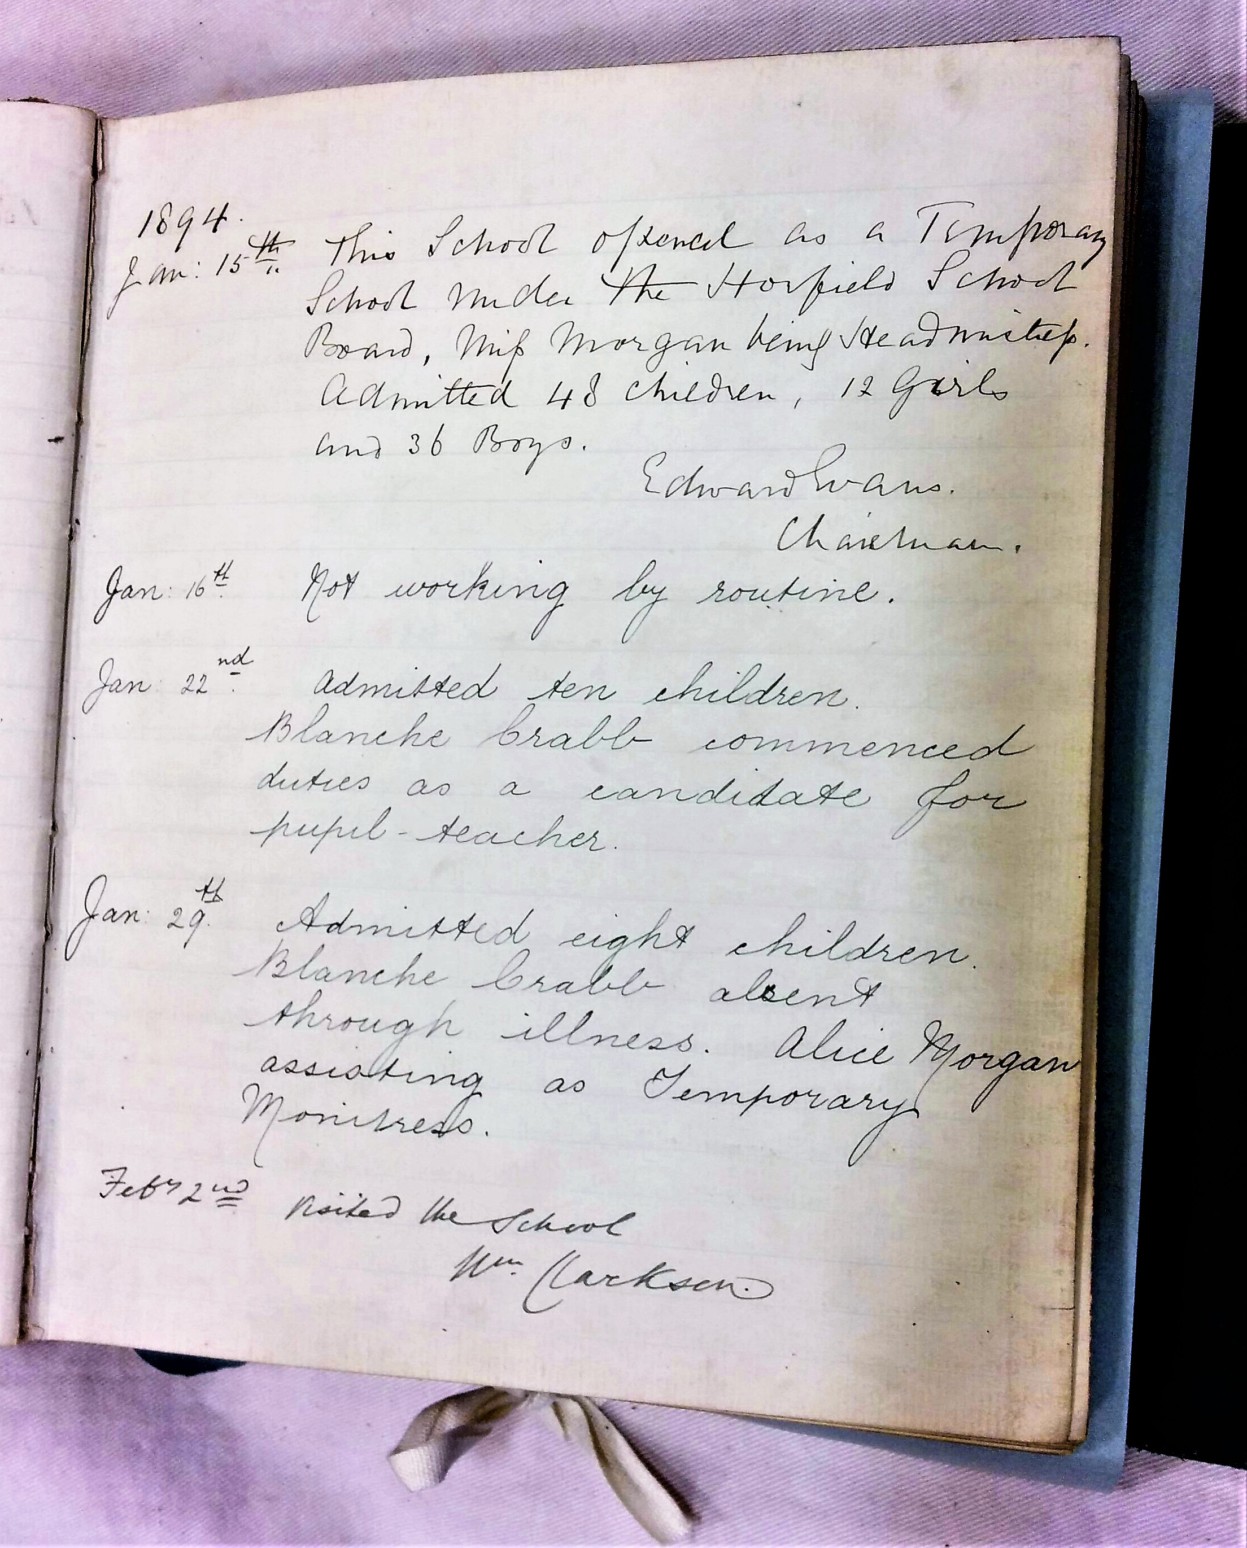 1894.
Jan: 15th. This School opened as a Temporary
School under the Horfield School
Board, Miss Morgan being Headmistress.
Admitted 48 children, 12 Girls
and 36 Boys.
Edward Evans.
Chairman.
Jan: 16th. Not working by routine.
Jan: 22nd. Admitted ten children.
Blanche Crabb commenced
duties as a candidate for
pupil-teacher.
Jan: 29th. Admitted eight children.
Blanche Crabb absent
through illness. Alice Morgan
assisting as Temporary
Monitress.
Feby 2nd Visited the School
Wm. Clarkson.